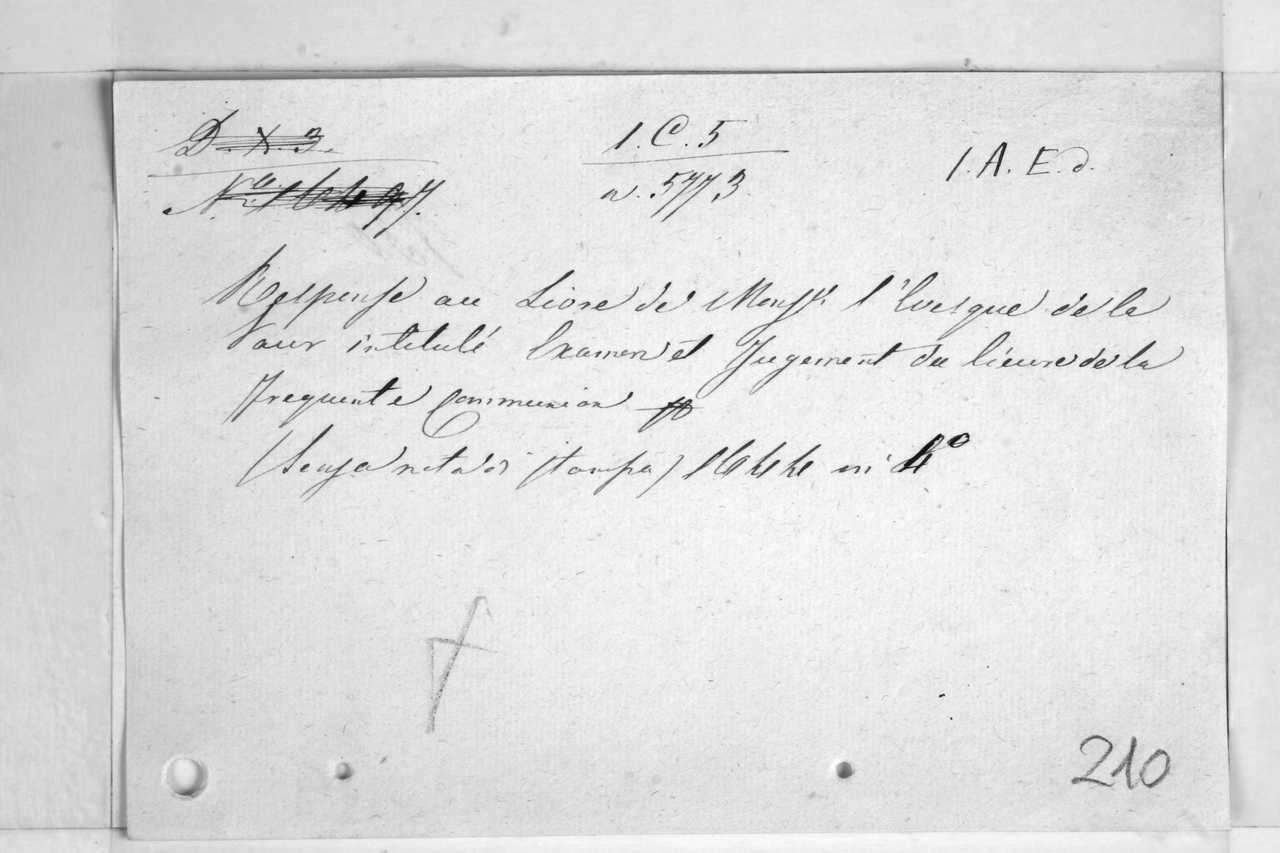 D. X. 3. 1. C. 5 1. A. E. d.
N.ro 16497. n. 5773
Response au Livre de Monsr. l'Evesque de la
Vaur intitulé Examen et Jugement du lieure de la
frequente Communion
(Senza nota di stampa) 1644 in 4o
210